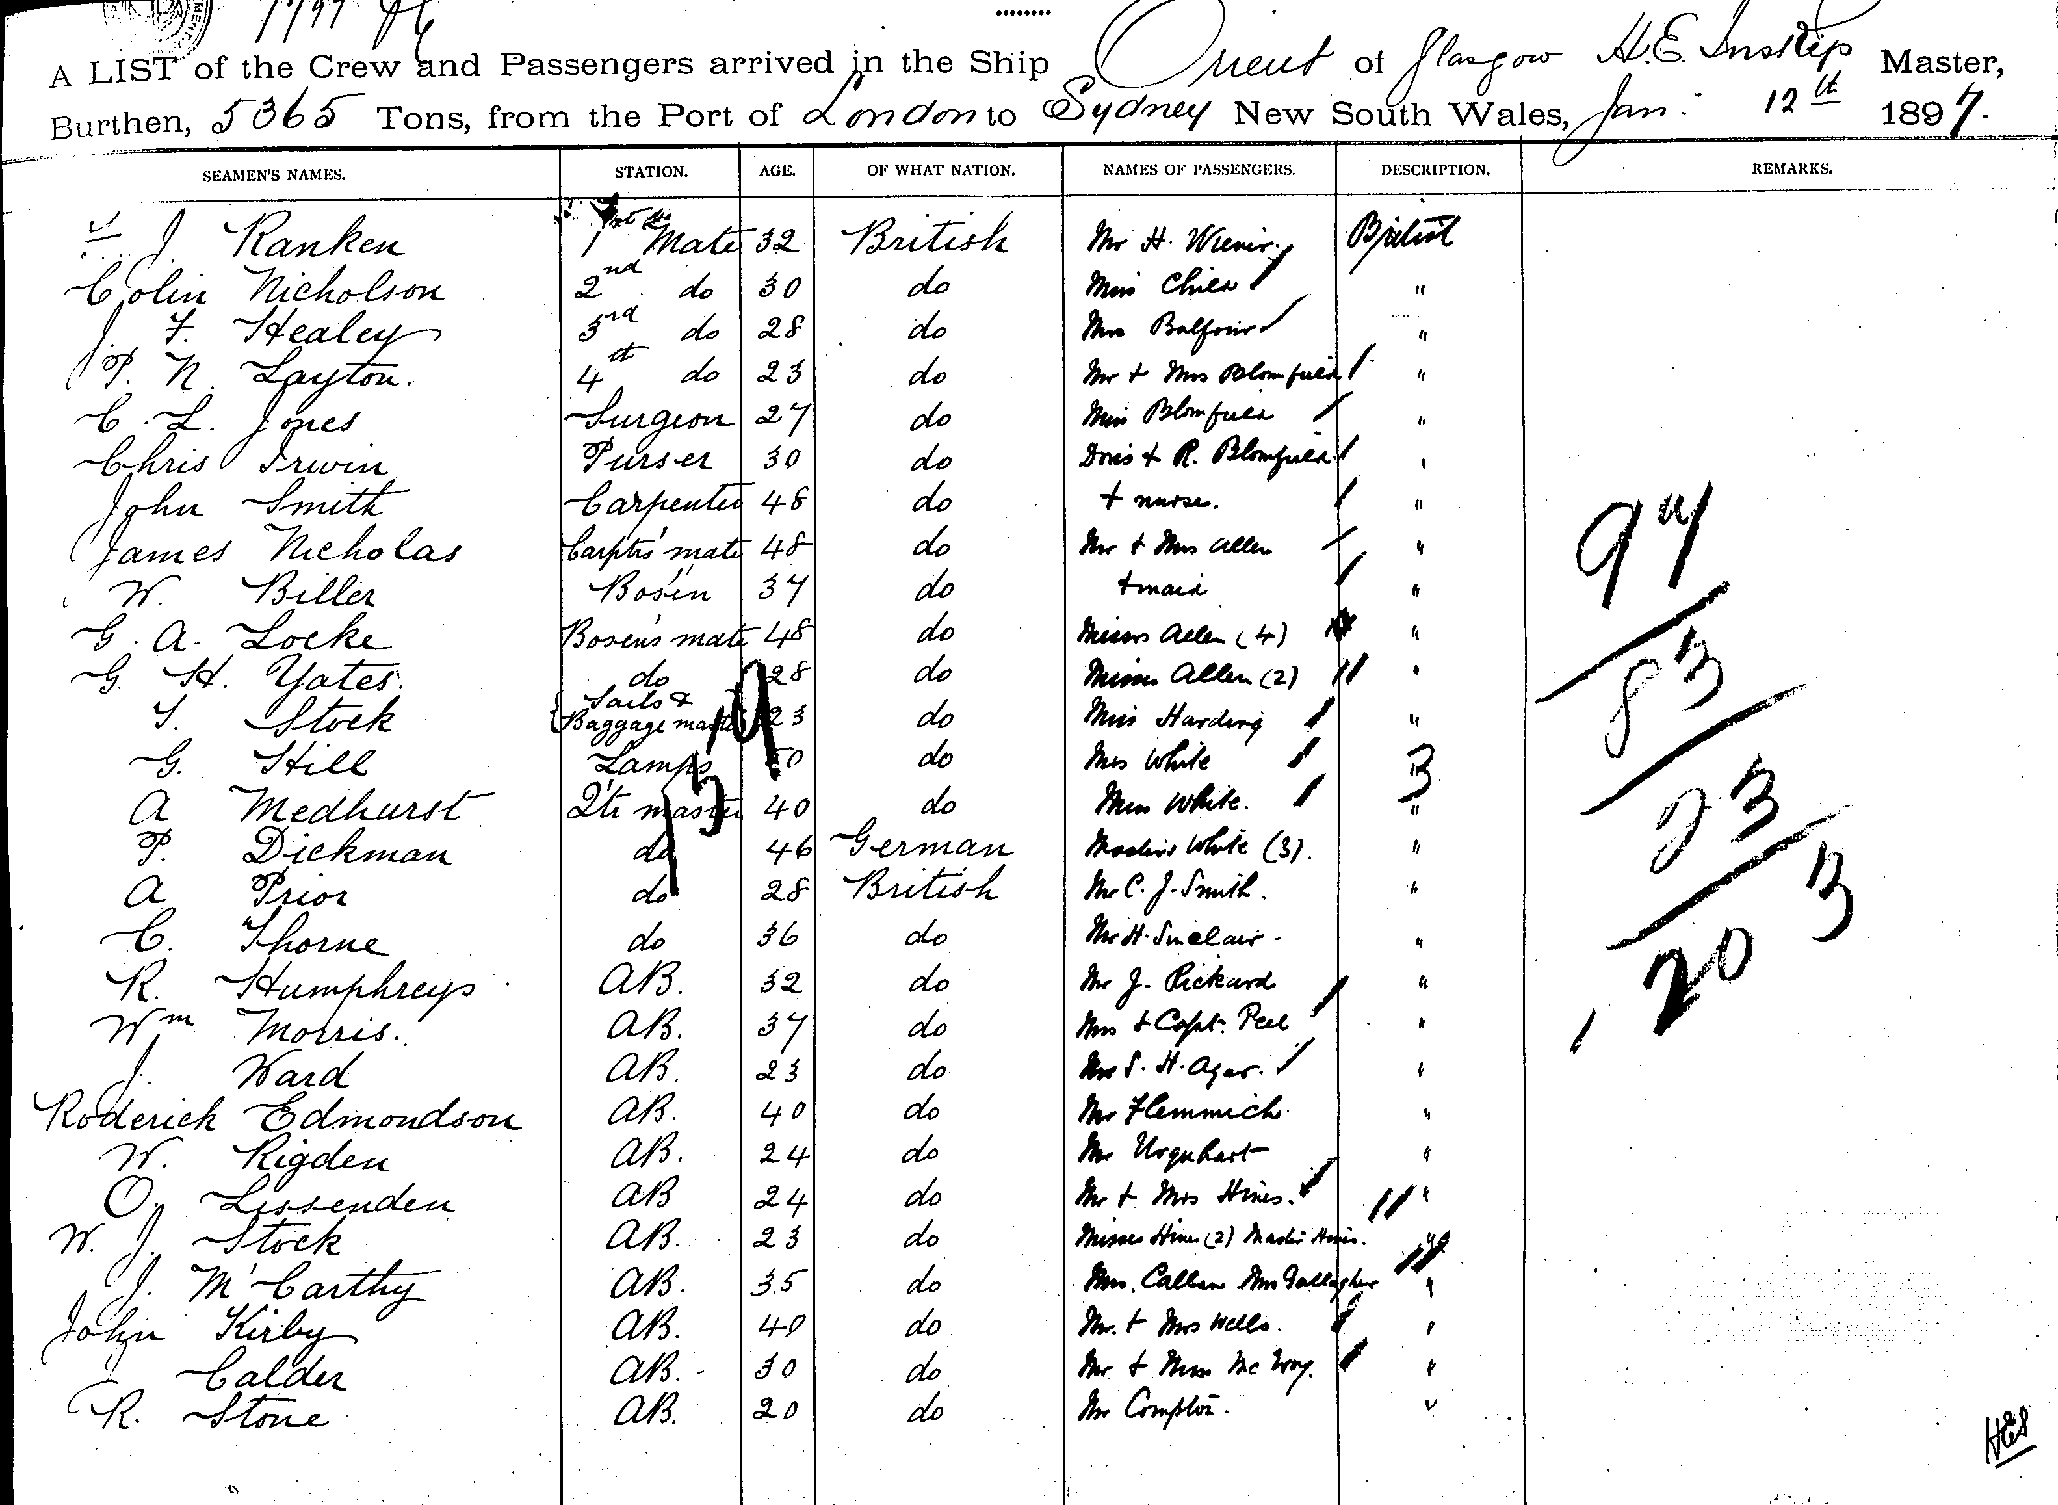 A LIST of the Crew and Passengers arrived in the Ship Orient of Glasgow H.E. Inskip Master,
Burthen, 5365 Tons, from the Port of London to Sydney New South Wales, Jan: 12th 1897.
SEAMEN'S NAMES. STATION. AGE. OF WHAT NATION. NAMES OF PASSENGERS. DESCRIPTION. REMARKS.
J. Ranken 1st Mate 32 British Mr H. British
Colin Nicholson 2nd do 30 do Miss Child "
J. F. Healey 3rd do 28 do Mrs Balfour "
P. N. Layton. 4th do 23 do Mr + Mrs Blomfield "
C. L. Jones Surgeon 27 do Miss Blomfield "
Chris Irwin Purser 30 do Doris + R. Blomfield "
John Smith Carpenter 48 do + nurse. "
James Nicholas Carptrs' mate 48 do Mr + Mrs Allen "
W. Biller Bos'en 37 do + maid "
G. A. Locke Bosen's mate 48 do Misses Allen (4) "
G. H. Yates. do 28 do Misses Allen (2) "
T. Stock Sails & Baggage master 23 do Miss Harding "
G. Hill Lamps 50 do Mrs White "
A Medhurst Qtr master 40 do Miss White. "
P. Dickman do 46 German Masters White (3). "
A Prior do 28 British Mr C. J. Smith. "
C. Thorne do 36 do Mr H. Sinclair. "
R. Humphreys AB. 32 do Mr J. Rickard "
Wm Morris. AB. 37 do Mrs + Capt. Peel "
J. Ward AB. 23 do Mrs S. H. Agar. "
Roderick Edmondson AB. 40 do Mr Flemmich "
W. Rigden AB. 24 do Mr Urquhart "
O. Lissenden AB 24 do Mr + Mrs Hines. "
W. J. Stock AB. 23 do Misses Hines (2) Master Hines. "
J. McCarthy AB. 35 do Mrs. Callum Mrs Gallagher "
John Kirby AB. 40 do Mr. + Mrs Wells. "
Calder AB. 30 do Mr + Miss "
R. Stone AB. 20 do Mr Compton. "
94
83
23
203
HES